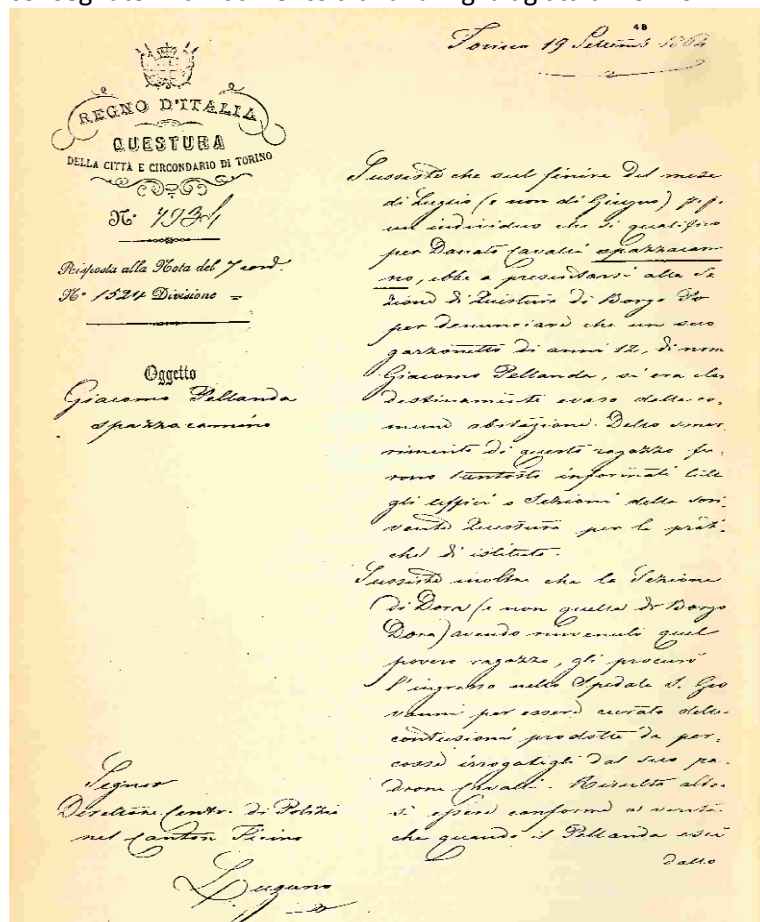 48
Torino 19 Settemb 1864
REGNO D'ITALIA
QUESTURA
DELLA CITTÀ E CIRCONDARIO DI TORINO
N.°
Risposta alla Nota del 7 cord.
N.° 1524 Divisione =
Oggetto
Giacomo Pellanda
spazzacamino
Sussiste che sul finire del mese
di Luglio (e non di Giugno) p. p.
un individuo che si qualificò
per Donato Cavalli spazzacami
no, ebbe a presentarsi alla Se
zione di Questura di Borgo Po
per denunciare che un suo
garzonetto di anni 12, di nome
Giacomo Pellanda, si era clan
destinamente evaso dalla co,
mune abitazione. Dello smar,
rimento di questo ragazzo fu,
rono tantosto informati tutti
gli uffici e Sezioni della scri
vente Questura per le prati,
che di istituto.
Sussiste inoltre che la Sezione
di Dora (e non quella di Borgo
Dora) avendo rinvenuto quel
povero ragazzo, gli procurò
l'ingresso nello Spedale S. Gio
vanni per essere curato delle
contusioni prodotte da per,
cosse irrogategli dal suo pa,
drone Cavalli. Risulta altre,
si essere conforme a verità
che quando il Pellanda uscì
dallo
Signor
Direttore Centr. di Polizia
nel Canton Ticino
Lugano